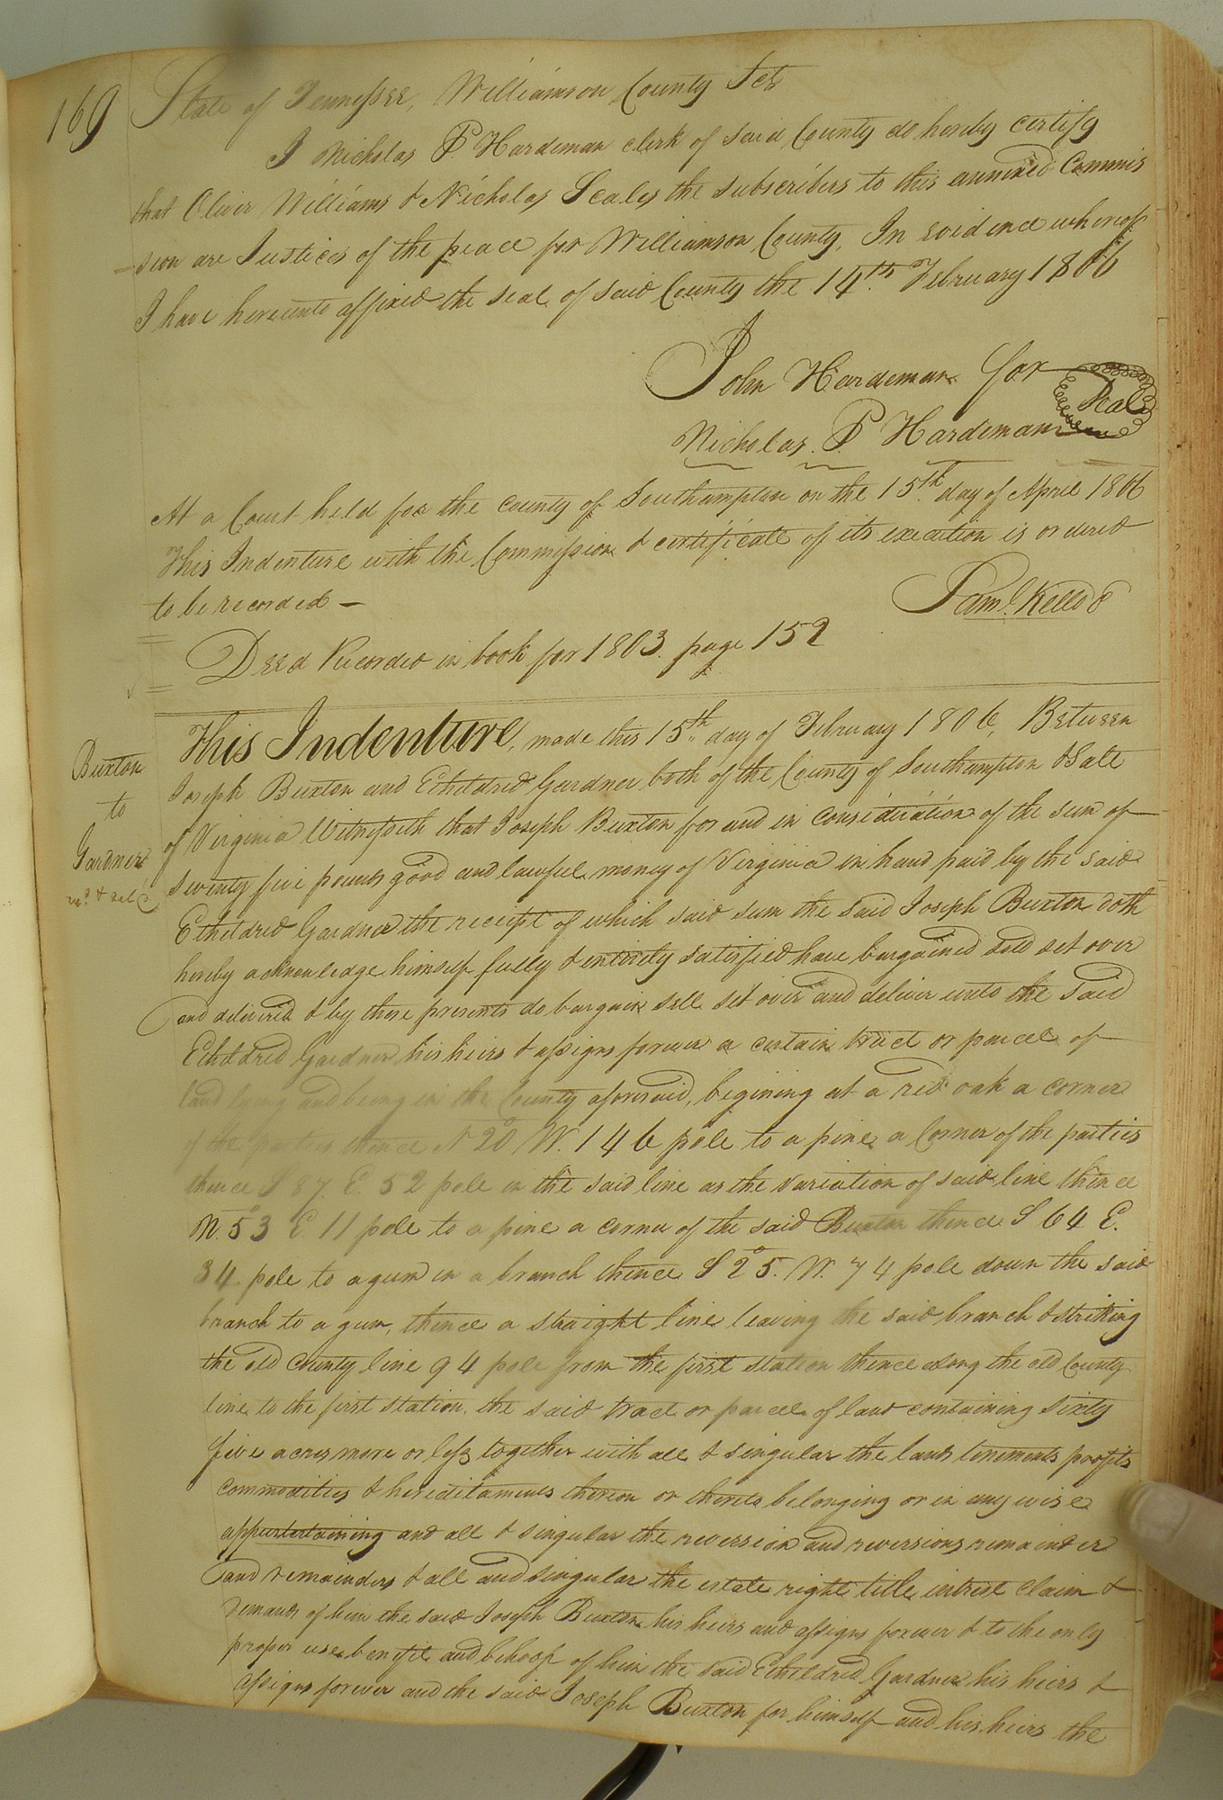 169
State of Tennessee, Williamson County Sct
I Nicholas P. Hardeman clerk of said County do hereby certify
that Oliver Williams & Nicholas Scales the subscribers to this annexed Commis
-sion are Justices of the peace for Williamson County, In evidence whereof
I have hereunto affixed the seal of said County the 14th. February 1806
John Hardeman for
Seal
Nicholas. P Hardeman
At a Court held for the county of Southampton on the 15th. day of April 1806
This Indenture with the Commission & certificate of its execution is ordered
to be recorded —
Saml. Kello
Deed Recorded in book for 1803. page 152
Buxton
to
Gardner
This Indenture, made this 15th. day of February 1806, Between
Joseph Buxton and Etheldred Gardner both of the County of Southampton & State
of Virginia Witnesseth that Joseph Buxton for and in consideration of the sum of
seventy five pounds good and lawful money of Virginia in hand paid by the said
Etheldred Gardner the receipt of which said sum the said Joseph Buxton doth
hereby acknowledge himself fully & entirely satisfied have bargained sold set over
and delivered & by these presents do bargain sell set over and deliver unto the said
Etheldred Gardner his heirs & assigns forever a certain tract or parcel of
land lying and being in the County aforesaid, begining at a red oak a corner
of the parties thence N 20° W. 146 pole to a pine a Corner of the parties
thence S 87. E. 52 pole in the said line as the variation of said line thence
N. 53° E 11 pole to a pine a corner of the said Buxton thence S 64 E.
34 pole to a gum in a branch thence S 25°. W. 74 pole down the said
branch to a gum, thence a straight line leaving the said branch & striking
the old County line 94 pole from the first station thence along the old County
line to the first station. the said tract or parcel of land containing sixty
five acres more or less together with all & singular the lands tenements profits
commodities & hereditaments thereon or thereto belonging or in any wise
appurtertaining and all & singular the reversion and reversions remainder
and remainders & all and singular the estate right title intrest claim &
demands of him the said Joseph Buxton his heirs and assigns forever & to the only
proper use benefit and behoof of him the said Etheldred Gardner his heirs &
assigns forever and the said Joseph Buxton for himself and his heirs the